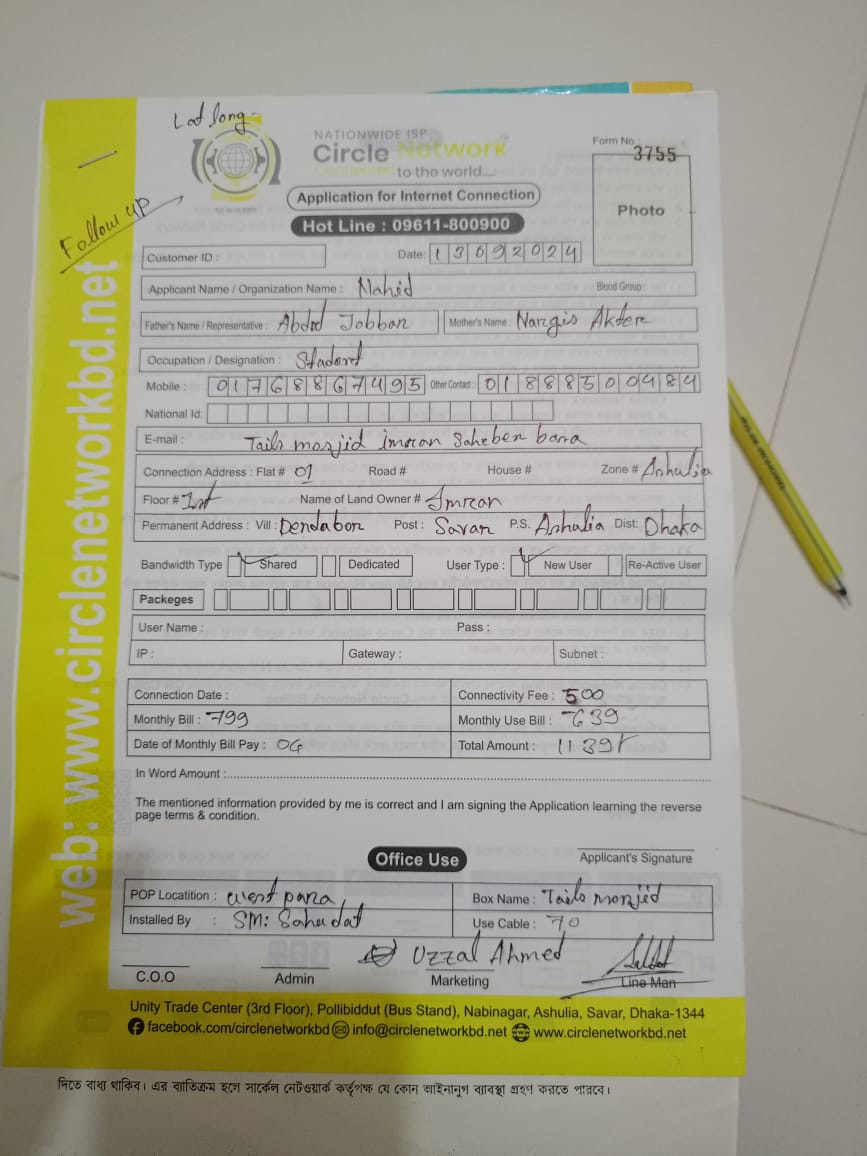 Lat long-
NATIONWIDE ISP
Circle Network
Connected to the world....
Form No : 3755
Photo
Application for Internet Connection
Hot Line : 09611-800900
Follow UP
Customer ID :
Date: 13092024
Applicant Name / Organization Name : Nahid Blood Group :
Father's Name / Representative : Abdod Jobbar Mother's Name : Nargis Akter
Occupation / Designation : Student
Mobile : 01768867495 Other Contact : 01888500484
National Id:
E-mail : Tails mosjid imran Saheber bara
Connection Address : Flat # 01 Road # House # Zone # Ashulia
Floor # 1st Name of Land Owner # Imran
Permanent Address : Vill : Dendabor Post : Savar P.S. Ashulia Dist: Dhaka
Bandwidth Type Shared Dedicated User Type : New User Re-Active User
Packeges
User Name : Pass :
IP : Gateway : Subnet :
Connection Date : Connectivity Fee : 500
Monthly Bill : 799 Monthly Use Bill : 639
Date of Monthly Bill Pay : 06 Total Amount : 1139
In Word Amount :
The mentioned information provided by me is correct and I am signing the Application learning the reverse
page terms & condition.
Office Use
Applicant's Signature
POP Locatition : West para Box Name : Tails monjid
Installed By : SM: Sahadat Use Cable : 70
Uzzal Ahmed
C.O.O Admin Marketing Line Man
Unity Trade Center (3rd Floor), Pollibiddut (Bus Stand), Nabinagar, Ashulia, Savar, Dhaka-1344
facebook.com/circlenetworkbd info@circlenetworkbd.net www.circlenetworkbd.net
web: www.circlenetworkbd.net
দিতে বাধ্য থাকিব। এর ব্যতিক্রম হলে সার্কেল নেটওয়ার্ক কর্তৃপক্ষ যে কোন আইনানুগ ব্যাবস্থা গ্রহণ করতে পারবে।